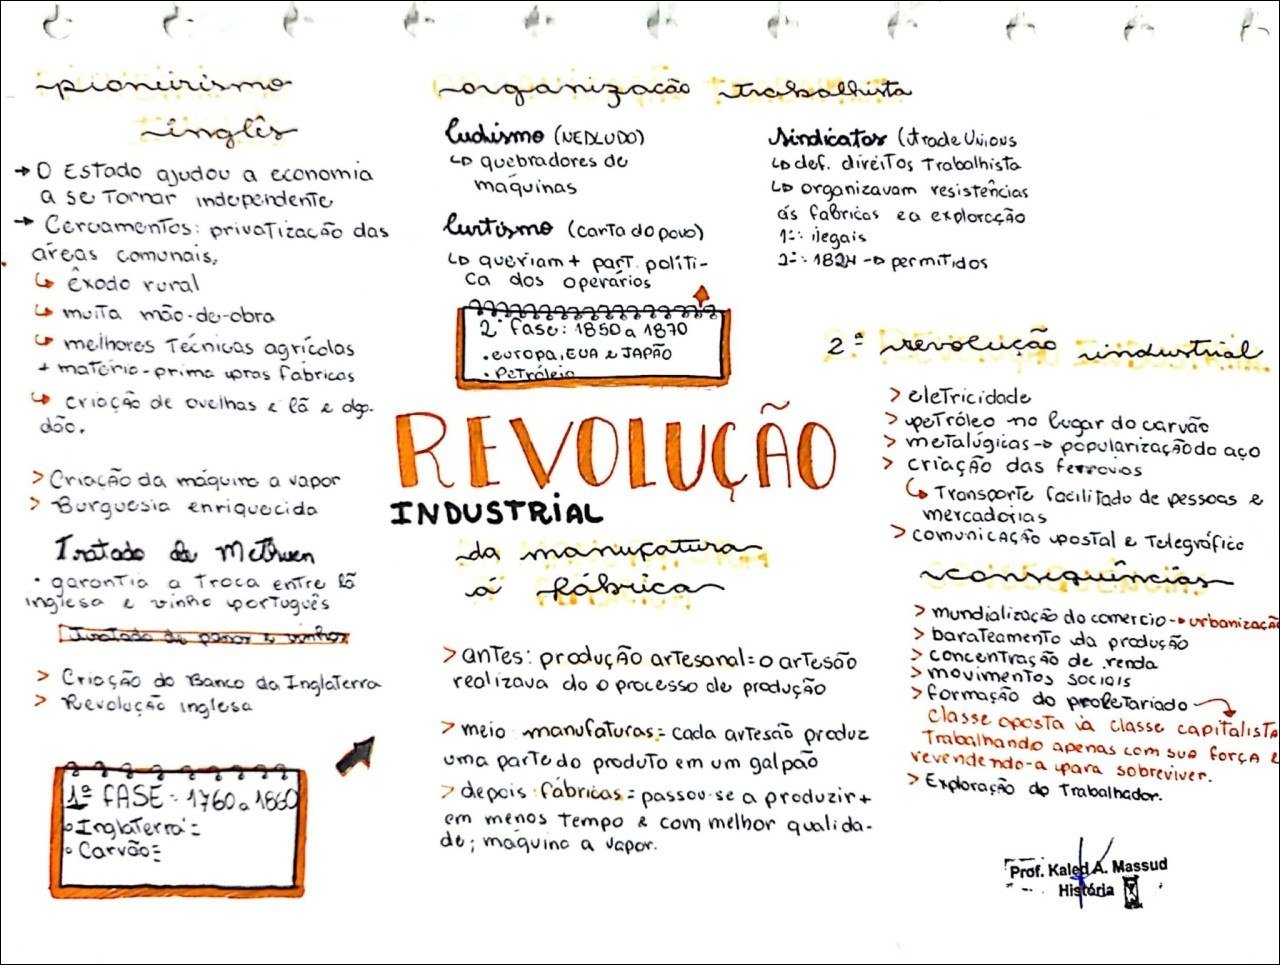 pioneirismo
inglês
→ O Estado ajudou a economia
a se tornar independente
→ Cercamentos: privatização das
áreas comunais,
↳ êxodo rural
↳ muita mão-de-obra
↳ melhores técnicas agrícolas
+ matéria-prima pras fabricas
↳ criação de ovelhas e lã e algo-
dão.
> Criação da máquina a vapor
> Burguesia enriquecida
Tratado de Methuen
• garantia a troca entre lã
inglesa e vinho português
Tratado de panos e vinhos
> Criação do Banco da Inglaterra
> Revolução inglesa
1ª FASE: 1760 a 1860
• Inglaterra:
• Carvão:
organização trabalhista
Ludismo (NEDLUDO)
↳ quebradores de
máquinas
Curtismo (carta do povo)
↳ queriam + part. políti-
ca dos operários
2ª fase: 1850 a 1870
• europa, EUA e JAPÃO
• Petróleio
Sindicatos (trade Unions
↳ def. direitos trabalhista
↳ organizavam resistências
ás fabricas e a exploração
1º: ilegais
2º: 1824 → permitidos
REVOLUÇÃO
INDUSTRIAL
da manufatura
á fábrica
> antes: produção artesanal = o artesão
realizava do o processo de produção
> meio manufaturas = cada artesão produz
uma parte do produto em um galpão
> depois fábricas = passou-se a produzir +
em menos tempo e com melhor qualida-
de; máquina a vapor.
2ª revolução industrial
> eletricidade
> petróleo no lugar do carvão
> metalúgicas → popularização do aço
> criação das ferrovias
↳ transporte facilitado de pessoas e
mercadorias
> comunicação postal e telegráfico
consequências
> mundialização do comercio → urbanização
> barateamento da produção
> concentração de renda
> movimentos sociais
> formação do proletariado
classe oposta à classe capitalista
Trabalhando apenas com sua força e
revendendo-a para sobreviver.
> Exploração do Trabalhador.
Prof. Kaled A. Massud
História